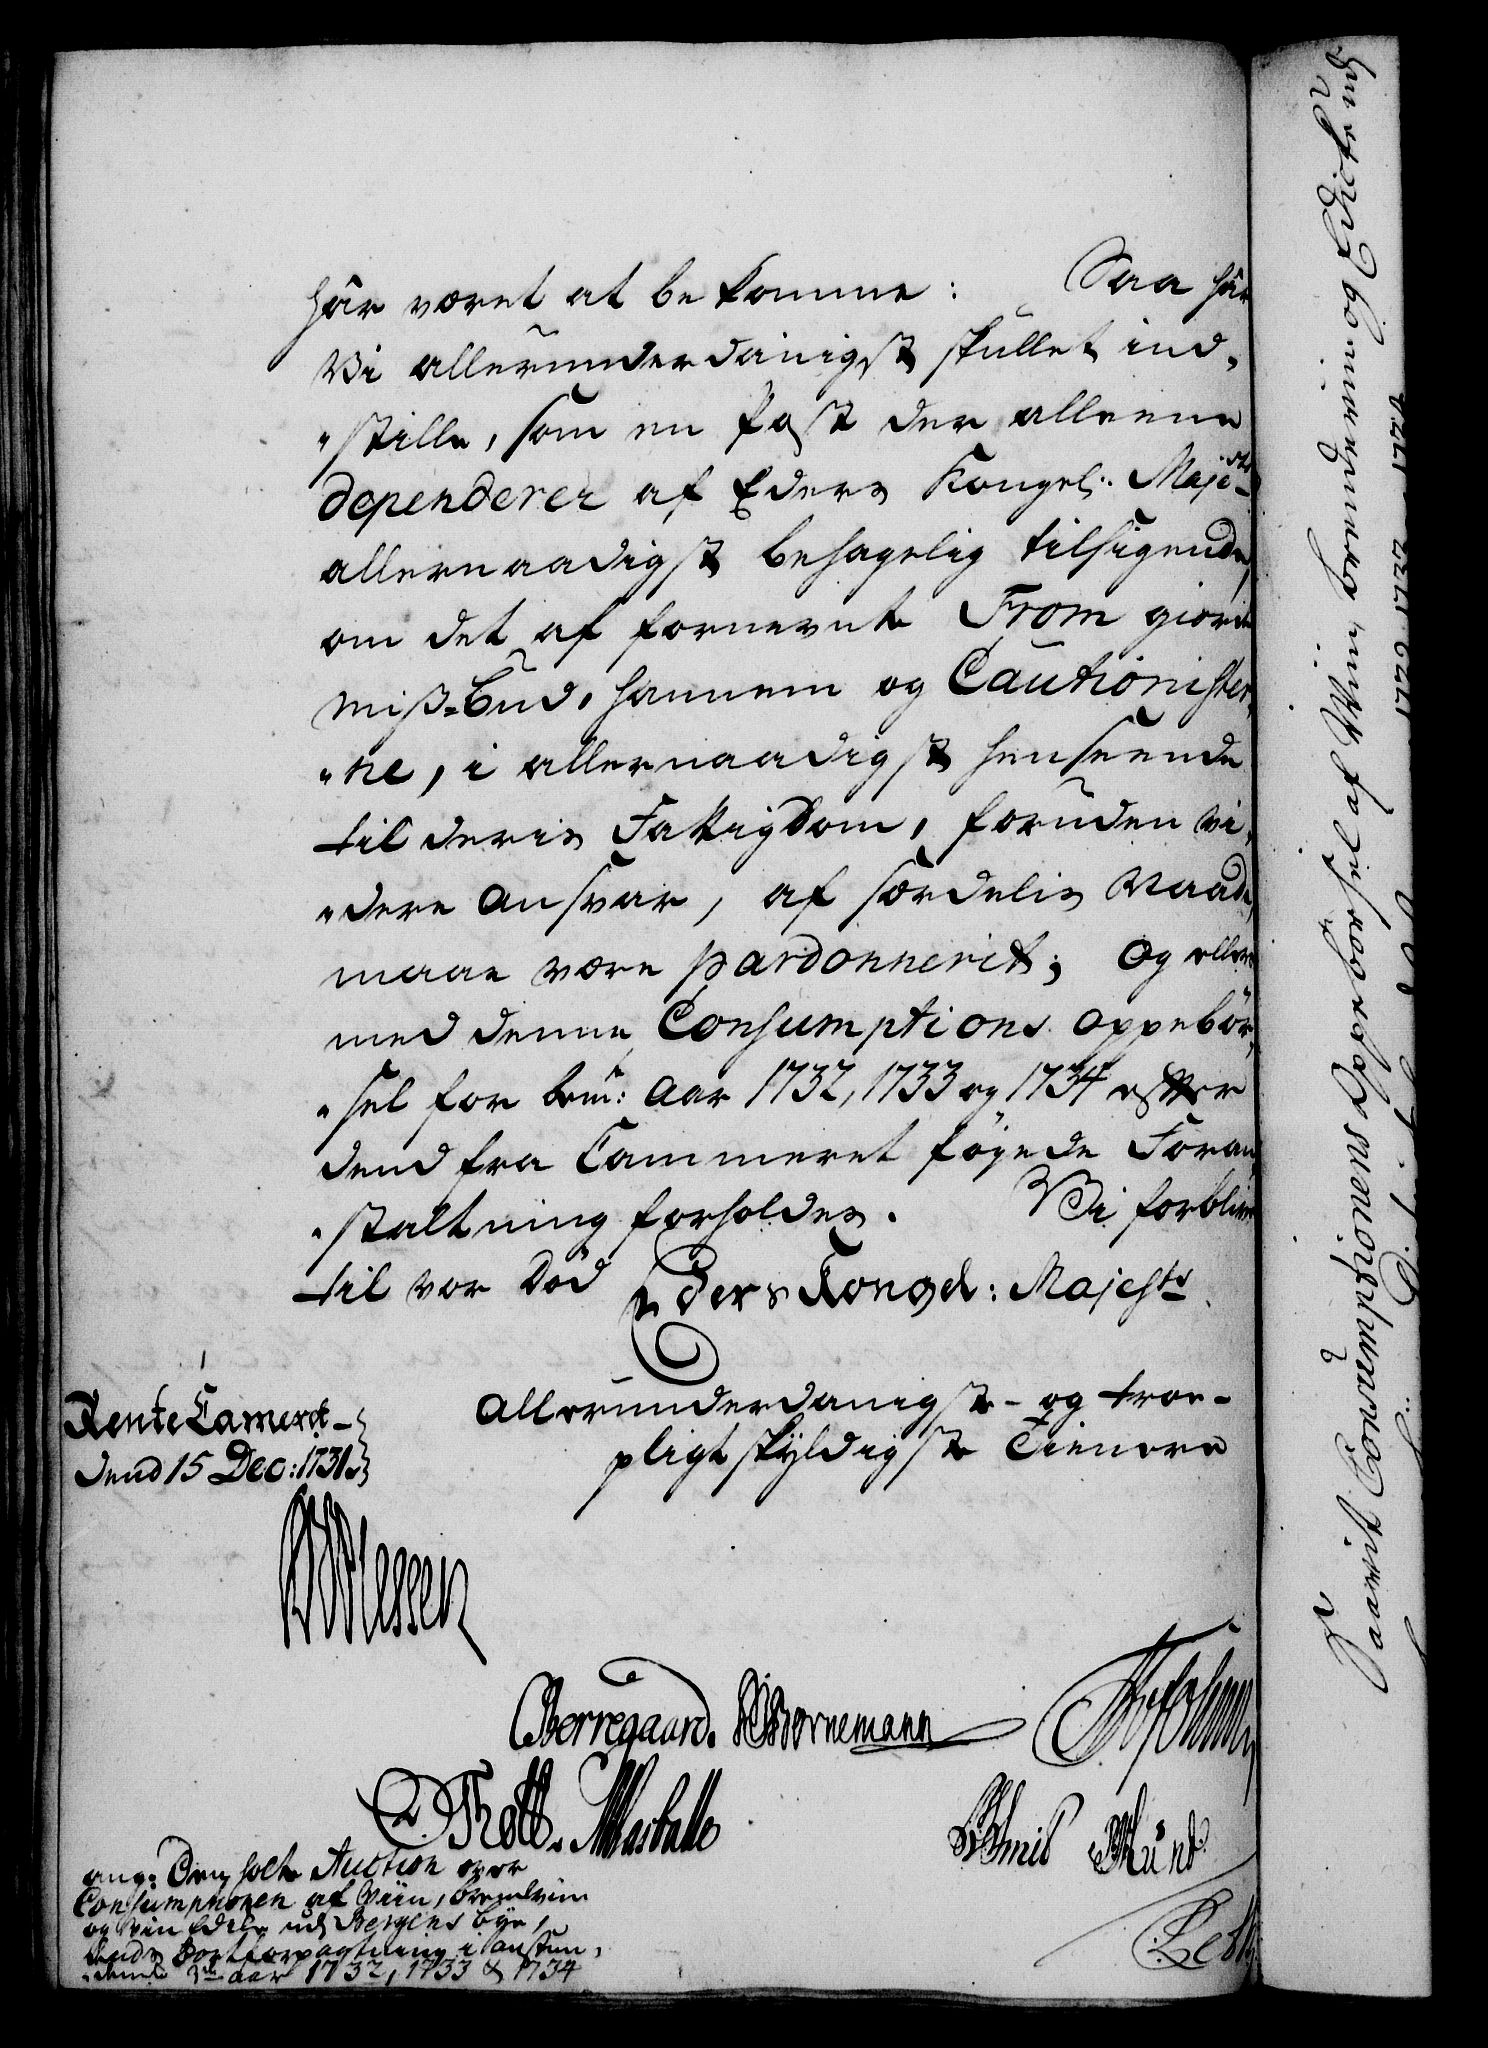 hår været at bekomme: Saa hår
Vi allerunderdånigst skullet ind-
"stille, som en Post der alleene
dependerer af Eders Kongel: Maj.ts
allernaadigst behagelig tilsigende,
om det af fornevnte From giorde
miss-bud, hannem og Cautionister-
"ne, i allernaadigst henseende
til deris Fattigdom, foruden vi-
"dere Ansvar, af særdelis Naade,
maae være pardonnerit; Og ellers
med denne Consumptions Oppebör-
"sel for bem: Aar 1732, 1733 og 1734 efter
dend fra Cammeret föyede Foran-
"staltning forholdes. Vi forblive
til vor Död Eders Kongel: Majesths
Allerunderdanigst- og troe-
pligtskyldigste Tienere
Rente Cameret
dend 15 Dec: 1731.
Plessen
CBerregaard. Bornemann
Thott.
Münt
ang: Den holte Auction over
Consumptionen af Viin, brendeviin
og Viin Edike udj Bergens bye,
dends Bortforpagtning i anstun-
"dende 3de aar 1732, 1733 & 1734
Paaviist Consumptionens Oppebörsel af Viin, brendeviin og Edicke udj